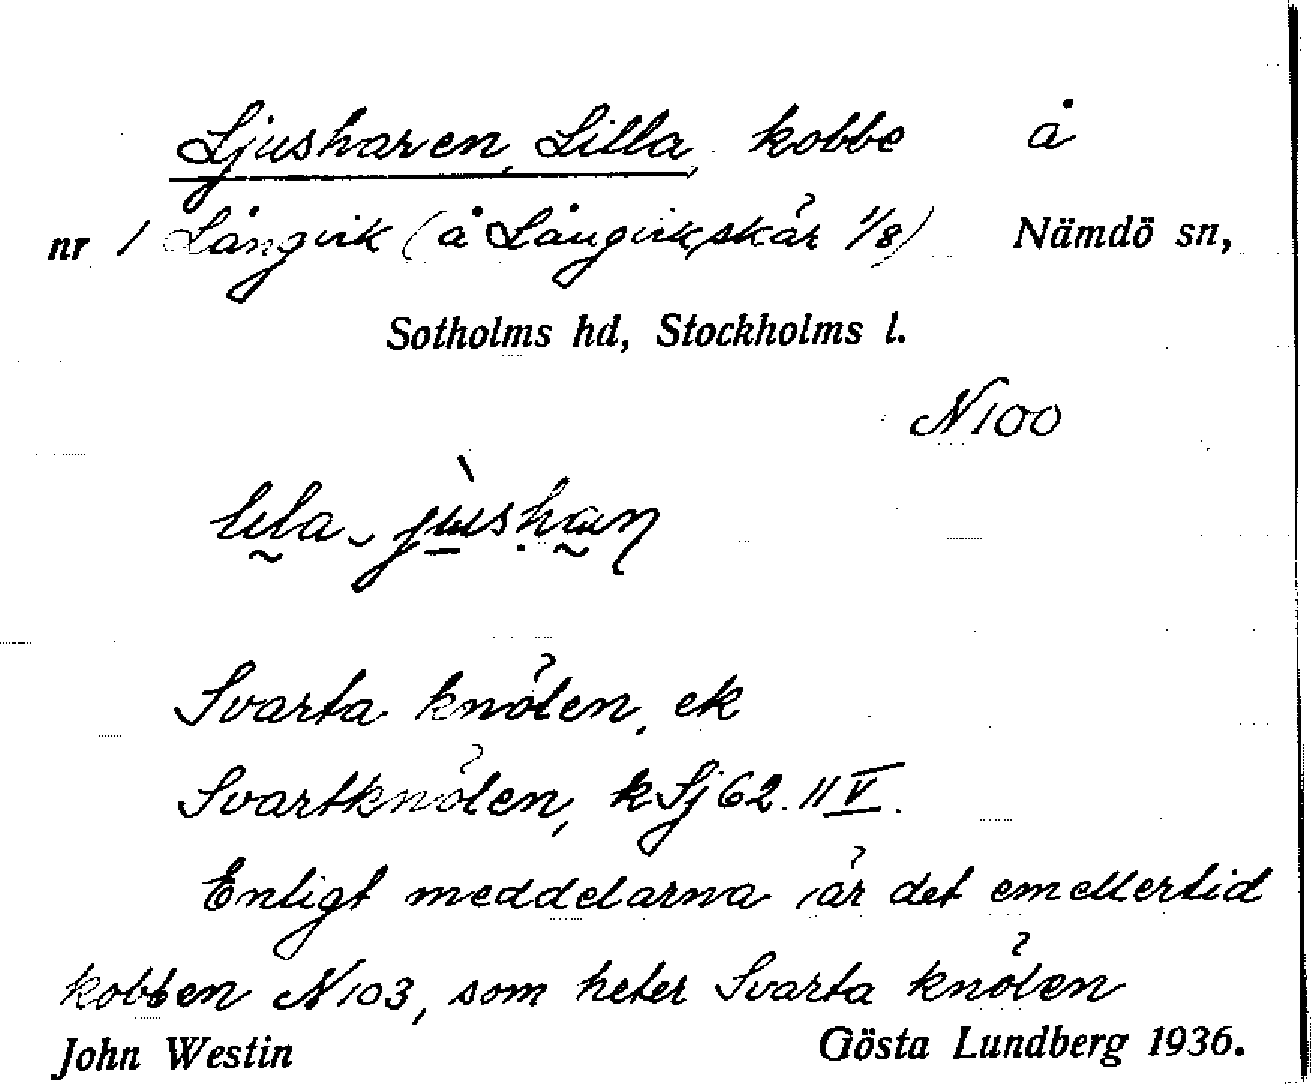 Ljusharen, Lilla, kobbe å
nr 1 Långvik (å Långviksskär 1/8) Nämdö sn,
Sotholms hd, Stockholms l.
N 100
lila-
Svarta knölen, ek
Svartknölen, k Sj 62. 11 V.
Enligt meddelarna är det emellertid
kobben N 103, som heter Svarta knölen
John Westin Gösta Lundberg 1936.